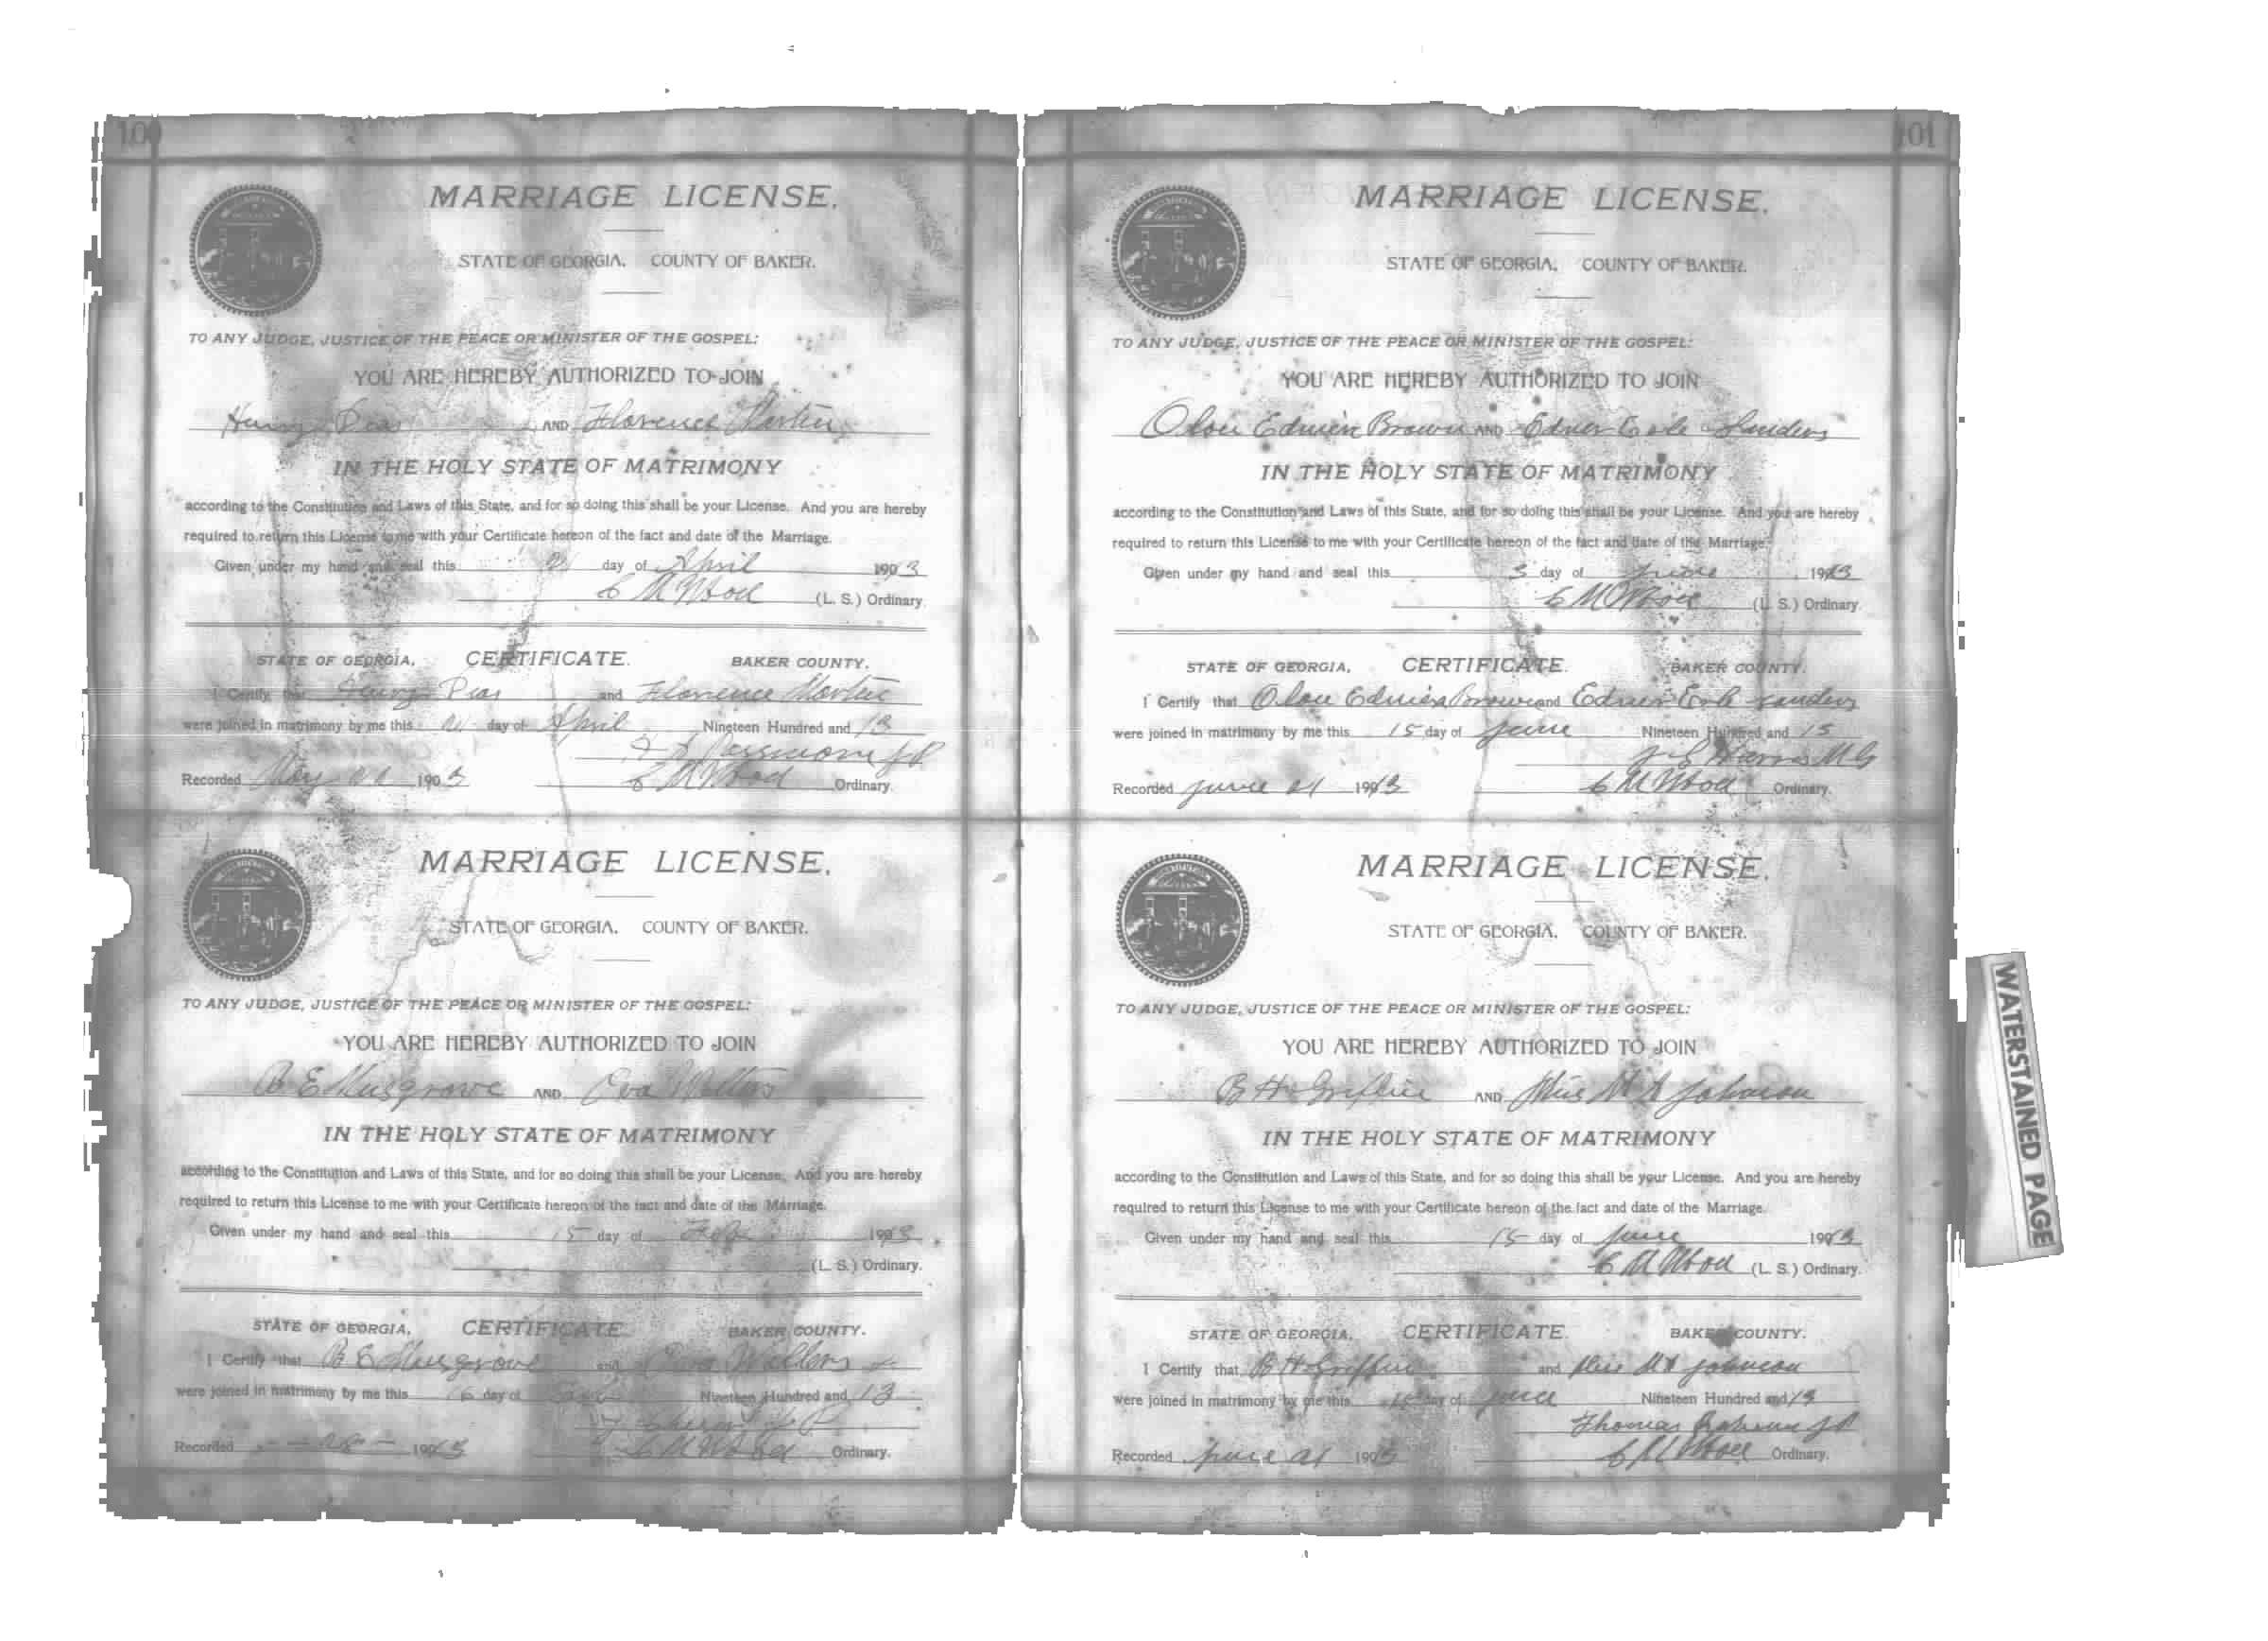 100
MARRIAGE LICENSE.
STATE OF GEORGIA, COUNTY OF BAKER.
TO ANY JUDGE, JUSTICE OF THE PEACE OR MINISTER OF THE GOSPEL:
YOU ARE HEREBY AUTHORIZED TO JOIN
Henry AND Florence
IN THE HOLY STATE OF MATRIMONY
according to the Constitution and Laws of this State, and for so doing this shall be your License. And you are hereby
required to return this License to me with your Certificate hereon of the fact and date of the Marriage.
Given under my hand and seal this day of April 1903
(L. S.) Ordinary
STATE OF GEORGIA, CERTIFICATE. BAKER COUNTY.
I Certify that Henry and Florence
were joined in matrimony by me this day of April Nineteen Hundred and 13
Recorded May 1903 Ordinary.
MARRIAGE LICENSE.
STATE OF GEORGIA, COUNTY OF BAKER.
TO ANY JUDGE, JUSTICE OF THE PEACE OR MINISTER OF THE GOSPEL:
YOU ARE HEREBY AUTHORIZED TO JOIN
B E Musgrove AND Eva
IN THE HOLY STATE OF MATRIMONY
according to the Constitution and Laws of this State, and for so doing this shall be your License. And you are hereby
required to return this License to me with your Certificate hereon of the fact and date of the Marriage.
Given under my hand and seal this 15 day of 1913
(L. S.) Ordinary.
STATE OF GEORGIA, CERTIFICATE. BAKER COUNTY.
I Certify that B E Musgrove and
were joined in matrimony by me this 16 day of Nineteen Hundred and 13
C M Wood
Recorded 1913 Ordinary.
101
MARRIAGE LICENSE.
STATE OF GEORGIA, COUNTY OF BAKER.
TO ANY JUDGE, JUSTICE OF THE PEACE OR MINISTER OF THE GOSPEL:
YOU ARE HEREBY AUTHORIZED TO JOIN
Edwin Brown AND
IN THE HOLY STATE OF MATRIMONY
according to the Constitution and Laws of this State, and for so doing this shall be your License. And you are hereby
required to return this License to me with your Certificate hereon of the fact and date of the Marriage.
Given under my hand and seal this 3 day of June 1913
C M Wood (L. S.) Ordinary.
STATE OF GEORGIA, CERTIFICATE. BAKER COUNTY.
I Certify that Edwin Brown and
were joined in matrimony by me this 15 day of June Nineteen Hundred and
Harris M G
Recorded June 21 1913 C M Wood Ordinary.
MARRIAGE LICENSE.
STATE OF GEORGIA, COUNTY OF BAKER.
TO ANY JUDGE, JUSTICE OF THE PEACE OR MINISTER OF THE GOSPEL:
YOU ARE HEREBY AUTHORIZED TO JOIN
B H Griffin AND Miss M A Johnson
IN THE HOLY STATE OF MATRIMONY
according to the Constitution and Laws of this State, and for so doing this shall be your License. And you are hereby
required to return this License to me with your Certificate hereon of the fact and date of the Marriage.
Given under my hand and seal this 15 day of June 1913
C M Wood (L. S.) Ordinary.
STATE OF GEORGIA, CERTIFICATE. BAKER COUNTY.
I Certify that B H Griffin and Miss M A Johnson
were joined in matrimony by me this day of June Nineteen Hundred and 13
Thomas J P
Recorded June 21 1913 C M Wood Ordinary.
WATERSTAINED PAGE